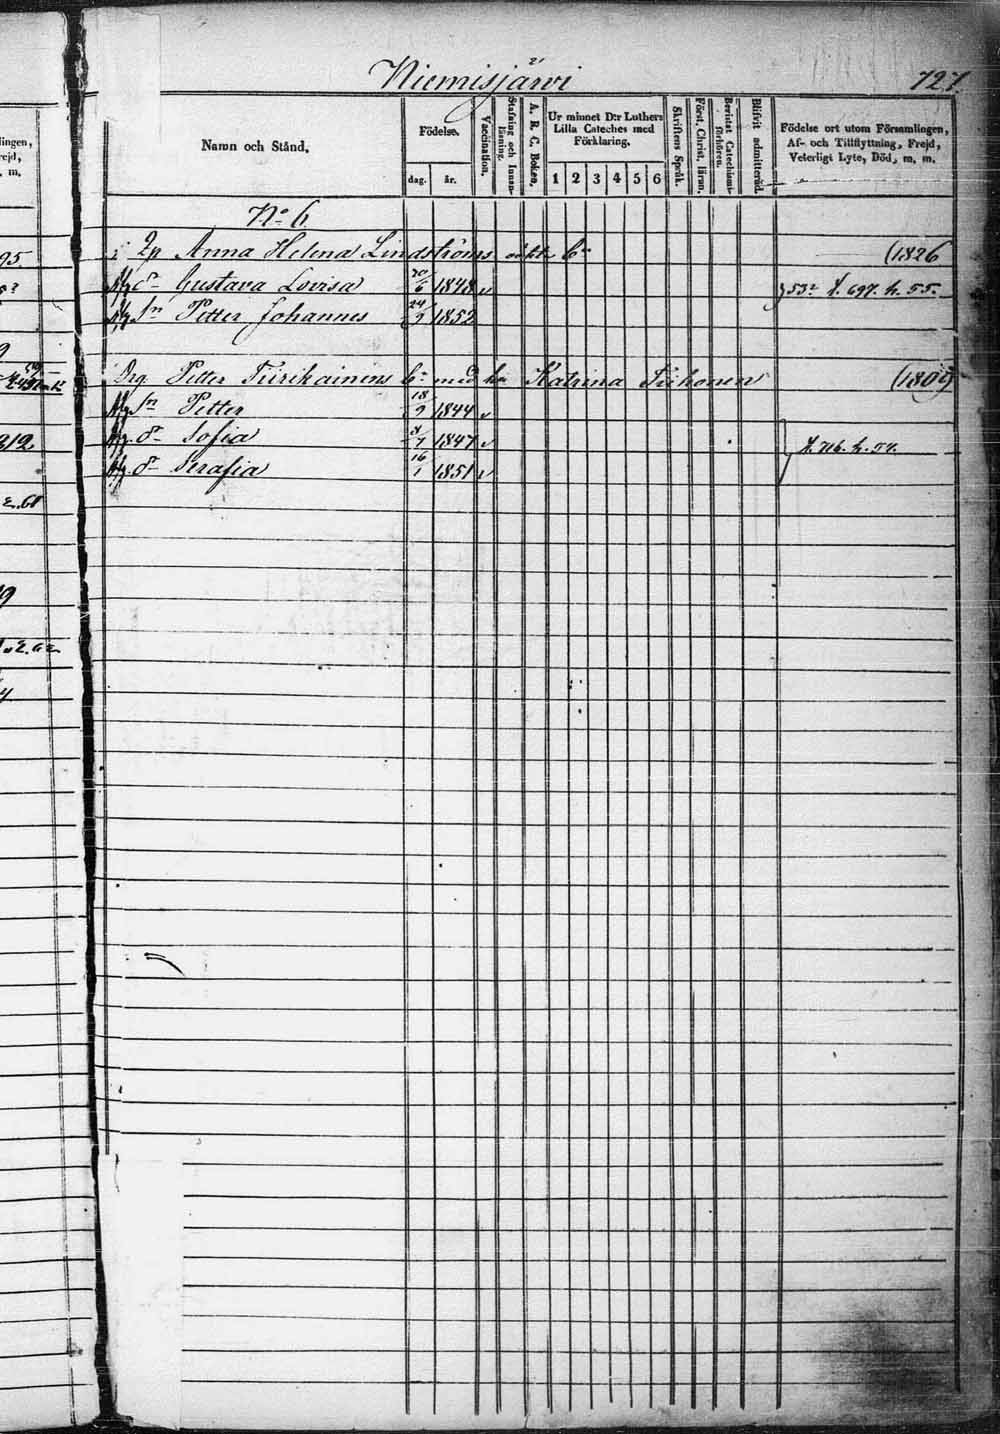 Niemisjärvi
727.
Namn och Stånd.
Födelse.
dag. år.
Vaccination.
Stafning och Innanläsning.
A. B. C. Boken.
Ur minnet D:r Luthers
Lilla Cateches med
Förklaring.
1 2 3 4 5 6
Skriftens Språk.
Först. Christ. läran.
Bevistat Catechismi-förhören.
Blifvit admitterad.
Födelse ort utom Församlingen,
Af- och Tillflyttning, Frejd,
Veterligt Lyte, Död, m. m.
No 6
Anna Helena Lindströms oäkta bn (1826
dr Gustava Lovisa 20/6 1848 v 53 f. 697. h. 55.
sn Petter Johannes 24/9 1852
Drg. Petter Tiirikainens bn med h. Katrina Tiihonen (1809)
sn Petter 18/9 1844 v
dr Sofia 8/7 1847 v f. 716. h. 54.
dr Serafia 16/1 1851 v
lingen,
rejd,
m.
95.
9
312
2.61
19
4